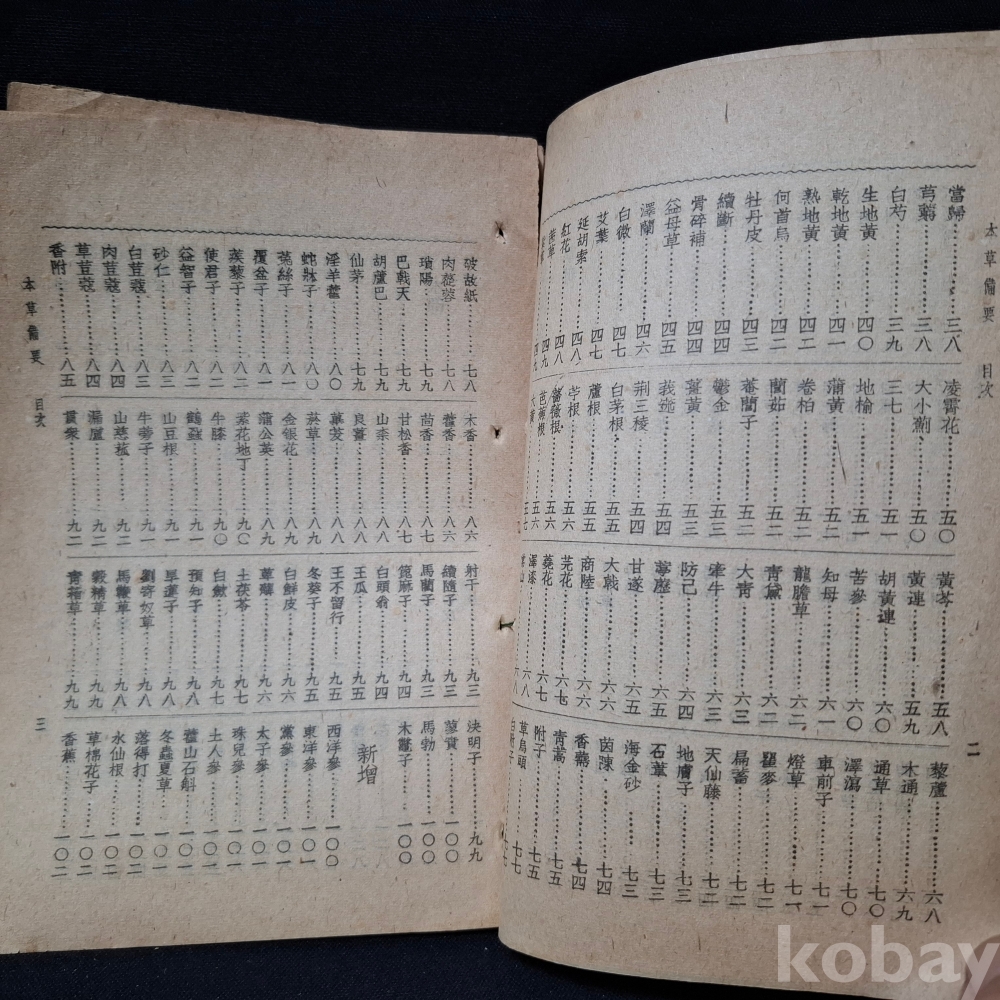 本草備要 目次 二
當歸 三八
芎藭 三八
白芍 三九
生地黃 四〇
乾地黃 四一
熟地黃 四一
何首烏 四二
牡丹皮 四三
續斷 四四
骨碎補 四四
益母草 四五
澤蘭 四六
白薇 四七
艾葉 四七
延胡索 四八
紅花 四八
茜草 四九
凌霄花 五〇
大小薊 五〇
三七 五一
地榆 五一
蒲黃 五二
卷柏 五二
蘭茹 五二
菴䕡子 五三
鬱金 五三
薑黃 五三
莪朮 五四
荆三棱 五四
白茅根 五五
蘆根 五五
苧根 五六
薔薇根 五六
芭蕉根 五六
大黃 五七
黃芩 五八
黃連 五九
胡黃連 六〇
苦參 六〇
知母 六一
龍膽草 六二
青黛 六二
大青 六三
牽牛 六三
防己 六四
葶藶 六五
甘遂 六五
大戟 六六
商陸 六六
芫花 六七
蕘花 六七
澤漆 六八
常山 六八
藜蘆 六八
木通 六九
通草 七〇
澤瀉 七〇
車前子 七一
燈草 七一
瞿麥 七二
扁蓄 七二
天仙藤 七二
地膚子 七三
石葦 七三
海金砂 七三
茵蔯 七四
香薷 七四
青蒿 七五
附子 七五
草烏頭 七七
白附子 七七
破故紙 七八
肉蓯蓉 七八
瑣陽 七九
巴戟天 七九
胡蘆巴 七九
仙茅 七九
淫羊藿 八〇
蛇牀子 八〇
菟絲子 八一
覆盆子 八一
蒺藜子 八一
使君子 八二
益智子 八二
砂仁 八三
白荳蔻 八三
肉荳蔻 八四
草荳蔻 八四
香附 八五
木香 八六
藿香 八六
茴香 八七
甘松香 八七
山柰 八八
良薑 八八
蓽茇 八八
菸草 八九
金銀花 八九
蒲公英 八九
紫花地丁 九〇
牛膝 九〇
鶴蝨 九一
山豆根 九一
牛蒡子 九一
山慈菰 九一
漏蘆 九二
貫衆 九二
射干 九三
續隨子 九三
馬藺子 九三
箆麻子 九四
白頭翁 九四
王瓜 九五
王不留行 九五
冬葵子 九五
白鮮皮 九六
萆薢 九六
土茯苓 九七
白蘞 九七
預知子 九八
旱蓮子 九八
劉寄奴草 九八
馬鞭草 九八
穀精草 九九
青葙草 九九
決明子 九九
蓼實 一〇〇
馬勃 一〇〇
木鼈子 一〇〇
新增
西洋參 一〇〇
東洋參 一〇一
黨參 一〇一
太子參 一〇一
珠兒參 一〇一
土人參 一〇一
霍山石斛 一〇二
冬蟲夏草 一〇二
落得打 一〇二
水仙根 一〇二
草棉花子 一〇二
香蕉 一〇二
本草備要 目次 三
kobay